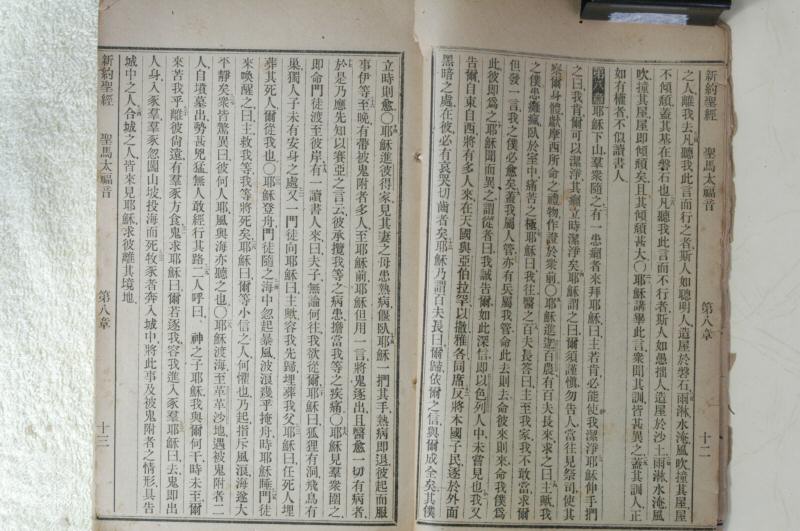 新約聖經　聖馬太福音　第八章　十二
之人離我去、凡聽我此言而行之者、斯人如聰明人造屋於磐石、雨淋水淹風吹、撞其屋、屋
不傾頹、蓋其基在磐石也、凡聽我此言而不行者、斯人如愚拙人、造屋於沙上、雨淋水淹風
吹、撞其屋、屋即傾頹矣、且其傾頹甚大〇耶穌講畢此言、衆聞其訓、皆甚異之、蓋其訓人、正
如有權者、不似讀書人
第八章 耶穌下山、羣衆隨之、有一患癩者來拜耶穌曰、主若肯、必能使我潔淨、耶穌伸手捫
之曰、我肯、爾可以潔淨、其癩立時潔淨矣、耶穌謂之曰、爾須謹愼、勿告人、當往見祭司、使其
察爾身體、獻摩西所命之禮物、作證於衆前〇耶穌進迦百農、有百夫長來求之曰、主歟、我
之僕患癱瘋、臥於室中、痛苦之極、耶穌曰、我往醫之、百夫長答曰、主至我家、我不敢當、求爾
但發一言、我之僕必愈矣、蓋我屬人管、亦有兵屬我管、命此去則去、命彼來則來、命我僕爲
此、彼即爲之、耶穌聞而異之、謂從者曰、我誠告爾、如此深信、即以色列人中、未嘗見也、我又
告爾、自東自西將有多人來在天國與亞伯拉罕以撒雅各同席、反將本國子民逐於外面
黑暗之處、在彼必有哀哭切齒者矣、耶穌乃謂百夫長曰、爾歸、依爾之信、與爾成全矣、其僕
立時則愈〇耶穌進彼得家、見其妻之母患熱病偃臥、耶穌一捫其手、熱病即退、彼起而服
事伊等、至晚、有帶被鬼附者多人至耶穌前、耶穌但用一言、將鬼逐出、且醫愈一切有病者、
於是乃應先知以賽亞之言、云、彼承攬我等之病患、擔當我等之疾痛〇耶穌見羣衆圍之、
即命門徒渡至彼岸、有一讀書人來曰、夫子、無論何往、我欲從爾、耶穌曰、狐狸有洞、飛鳥有
巢、獨人子未有安身之處、又一門徒向耶穌曰、主歟、容我先歸埋葬我父、耶穌曰、任死人埋
葬其死人、爾從我也〇耶穌登舟、門徒隨之、海中忽起暴風、波浪幾乎掩舟、時耶穌睡、門徒
來喚醒之曰、主救我等、我等將死矣、耶穌曰、爾等小信之人、何懼也、乃起指斥風浪、海遂大
平靜矣、衆皆驚異曰、彼何人耶、風與海亦聽之也〇耶穌渡海至革革沙地、遇被鬼附者二
人、自墳墓出、勢甚兇猛、無人敢經行其路、二人呼曰、神之子耶穌、我與爾何干、時未至、爾
來苦我乎、離彼尙遠、有羣豕方食、鬼求耶穌曰、爾若逐我、容我進入豕羣、耶穌曰、去、鬼即出
人身、入豕羣、羣豕忽闖山坡、投海而死、牧豕者奔入城中、將此事及被鬼附者之情形、具告
城中之人、合城之人、皆來見耶穌、求彼離其境地、
新約聖經　聖馬太福音　第八章　十三